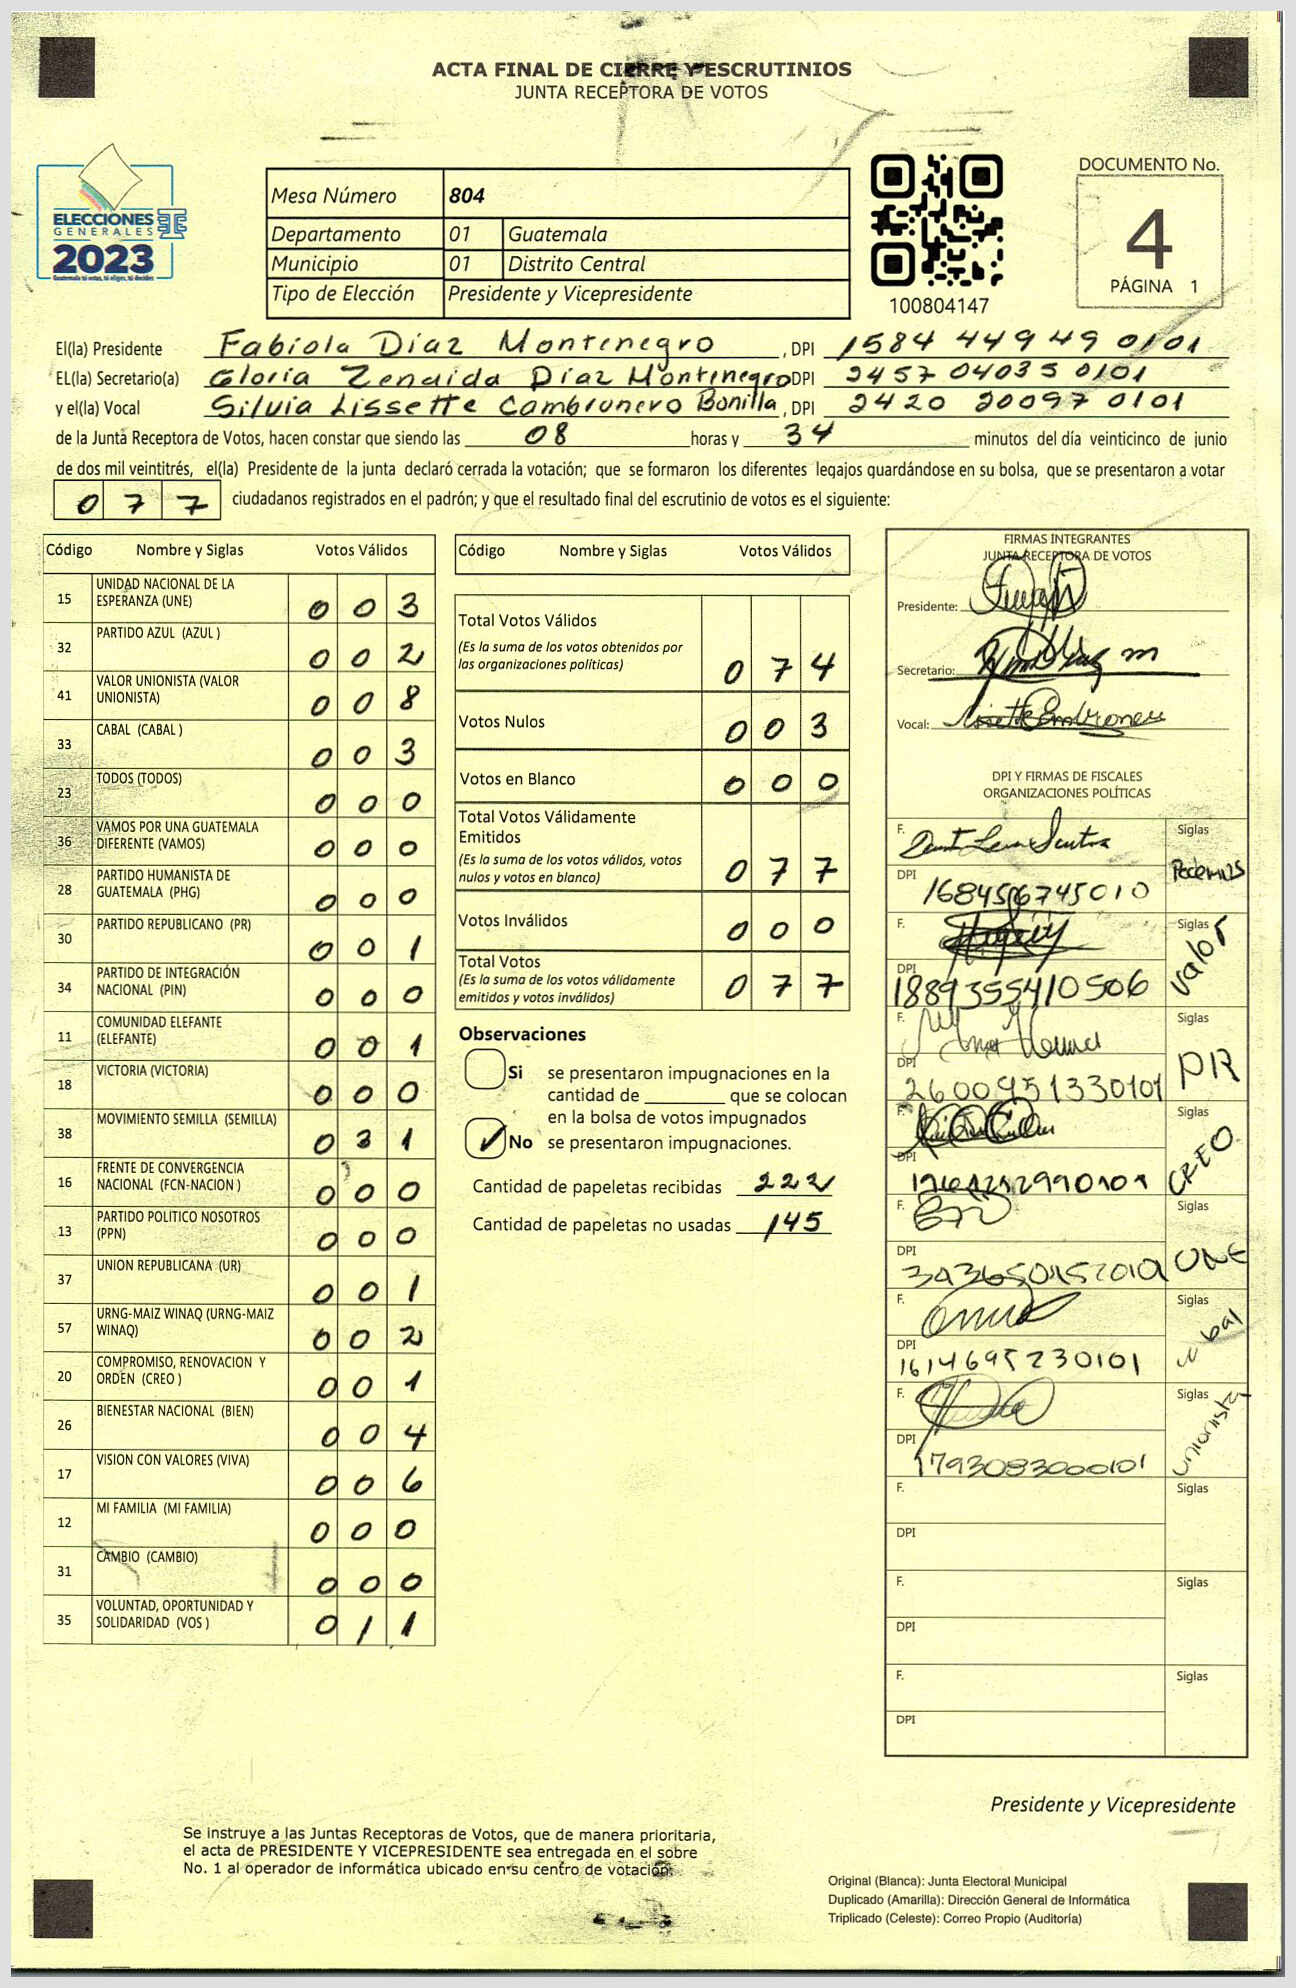 ACTA FINAL DE CIERRE Y ESCRUTINIOS
JUNTA RECEPTORA DE VOTOS
ELECCIONES
GENERALES
2023
Guatemala tú votas, tú eliges, tú decides
Mesa Número 804
Departamento 01 Guatemala
Municipio 01 Distrito Central
Tipo de Elección Presidente y Vicepresidente
100804147
DOCUMENTO No.
4
PÁGINA 1
El(la) Presidente Fabiola Díaz Montenegro , DPI 1584 44949 0101
EL(la) Secretario(a) Gloria Zenaida Díaz Montenegro DPI 2457 04035 0101
y el(la) Vocal Silvia Lissette Cambronero Bonilla , DPI 2420 20097 0101
de la Junta Receptora de Votos, hacen constar que siendo las 08 horas y 34 minutos del día veinticinco de junio
de dos mil veintitrés, el(la) Presidente de la junta declaró cerrada la votación; que se formaron los diferentes legajos guardándose en su bolsa, que se presentaron a votar
0 7 7 ciudadanos registrados en el padrón; y que el resultado final del escrutinio de votos es el siguiente:
Código Nombre y Siglas Votos Válidos
15 UNIDAD NACIONAL DE LA
ESPERANZA (UNE) 0 0 3
32 PARTIDO AZUL (AZUL ) 0 0 2
41 VALOR UNIONISTA (VALOR
UNIONISTA) 0 0 8
33 CABAL (CABAL ) 0 0 3
23 TODOS (TODOS) 0 0 0
36 VAMOS POR UNA GUATEMALA
DIFERENTE (VAMOS) 0 0 0
28 PARTIDO HUMANISTA DE
GUATEMALA (PHG) 0 0 0
30 PARTIDO REPUBLICANO (PR) 0 0 1
34 PARTIDO DE INTEGRACIÓN
NACIONAL (PIN) 0 0 0
11 COMUNIDAD ELEFANTE
(ELEFANTE) 0 0 1
18 VICTORIA (VICTORIA) 0 0 0
38 MOVIMIENTO SEMILLA (SEMILLA) 0 3 1
16 FRENTE DE CONVERGENCIA
NACIONAL (FCN-NACION ) 0 0 0
13 PARTIDO POLITICO NOSOTROS
(PPN) 0 0 0
37 UNION REPUBLICANA (UR) 0 0 1
57 URNG-MAIZ WINAQ (URNG-MAIZ
WINAQ) 0 0 2
20 COMPROMISO, RENOVACION Y
ORDEN (CREO ) 0 0 1
26 BIENESTAR NACIONAL (BIEN) 0 0 4
17 VISION CON VALORES (VIVA) 0 0 6
12 MI FAMILIA (MI FAMILIA) 0 0 0
31 CAMBIO (CAMBIO) 0 0 0
35 VOLUNTAD, OPORTUNIDAD Y
SOLIDARIDAD (VOS ) 0 1 1
Código Nombre y Siglas Votos Válidos
Total Votos Válidos
(Es la suma de los votos obtenidos por
las organizaciones políticas) 0 7 4
Votos Nulos 0 0 3
Votos en Blanco 0 0 0
Total Votos Válidamente
Emitidos
(Es la suma de los votos válidos, votos
nulos y votos en blanco) 0 7 7
Votos Inválidos 0 0 0
Total Votos
(Es la suma de los votos válidamente
emitidos y votos inválidos) 0 7 7
Observaciones
Si se presentaron impugnaciones en la
cantidad de ________ que se colocan
en la bolsa de votos impugnados
No se presentaron impugnaciones.
Cantidad de papeletas recibidas 222
Cantidad de papeletas no usadas 145
FIRMAS INTEGRANTES
JUNTA RECEPTORA DE VOTOS
Presidente:
Secretario:
Vocal:
DPI Y FIRMAS DE FISCALES
ORGANIZACIONES POLÍTICAS
F. Siglas
DPI Podemos
F. Siglas
DPI 1889355410506 Valor
F. Siglas
DPI 2600951330101 PR
F. Siglas
DPI CREO
F. Siglas
DPI UNE
F. Siglas
DPI 1614695230101
F. Siglas
DPI 1793083000101 Unionista
F. Siglas
DPI
F. Siglas
DPI
F. Siglas
DPI
Presidente y Vicepresidente
Se instruye a las Juntas Receptoras de Votos, que de manera prioritaria,
el acta de PRESIDENTE Y VICEPRESIDENTE sea entregada en el sobre
No. 1 al operador de informática ubicado en su centro de votación.
Original (Blanca): Junta Electoral Municipal
Duplicado (Amarilla): Dirección General de Informática
Triplicado (Celeste): Correo Propio (Auditoría)